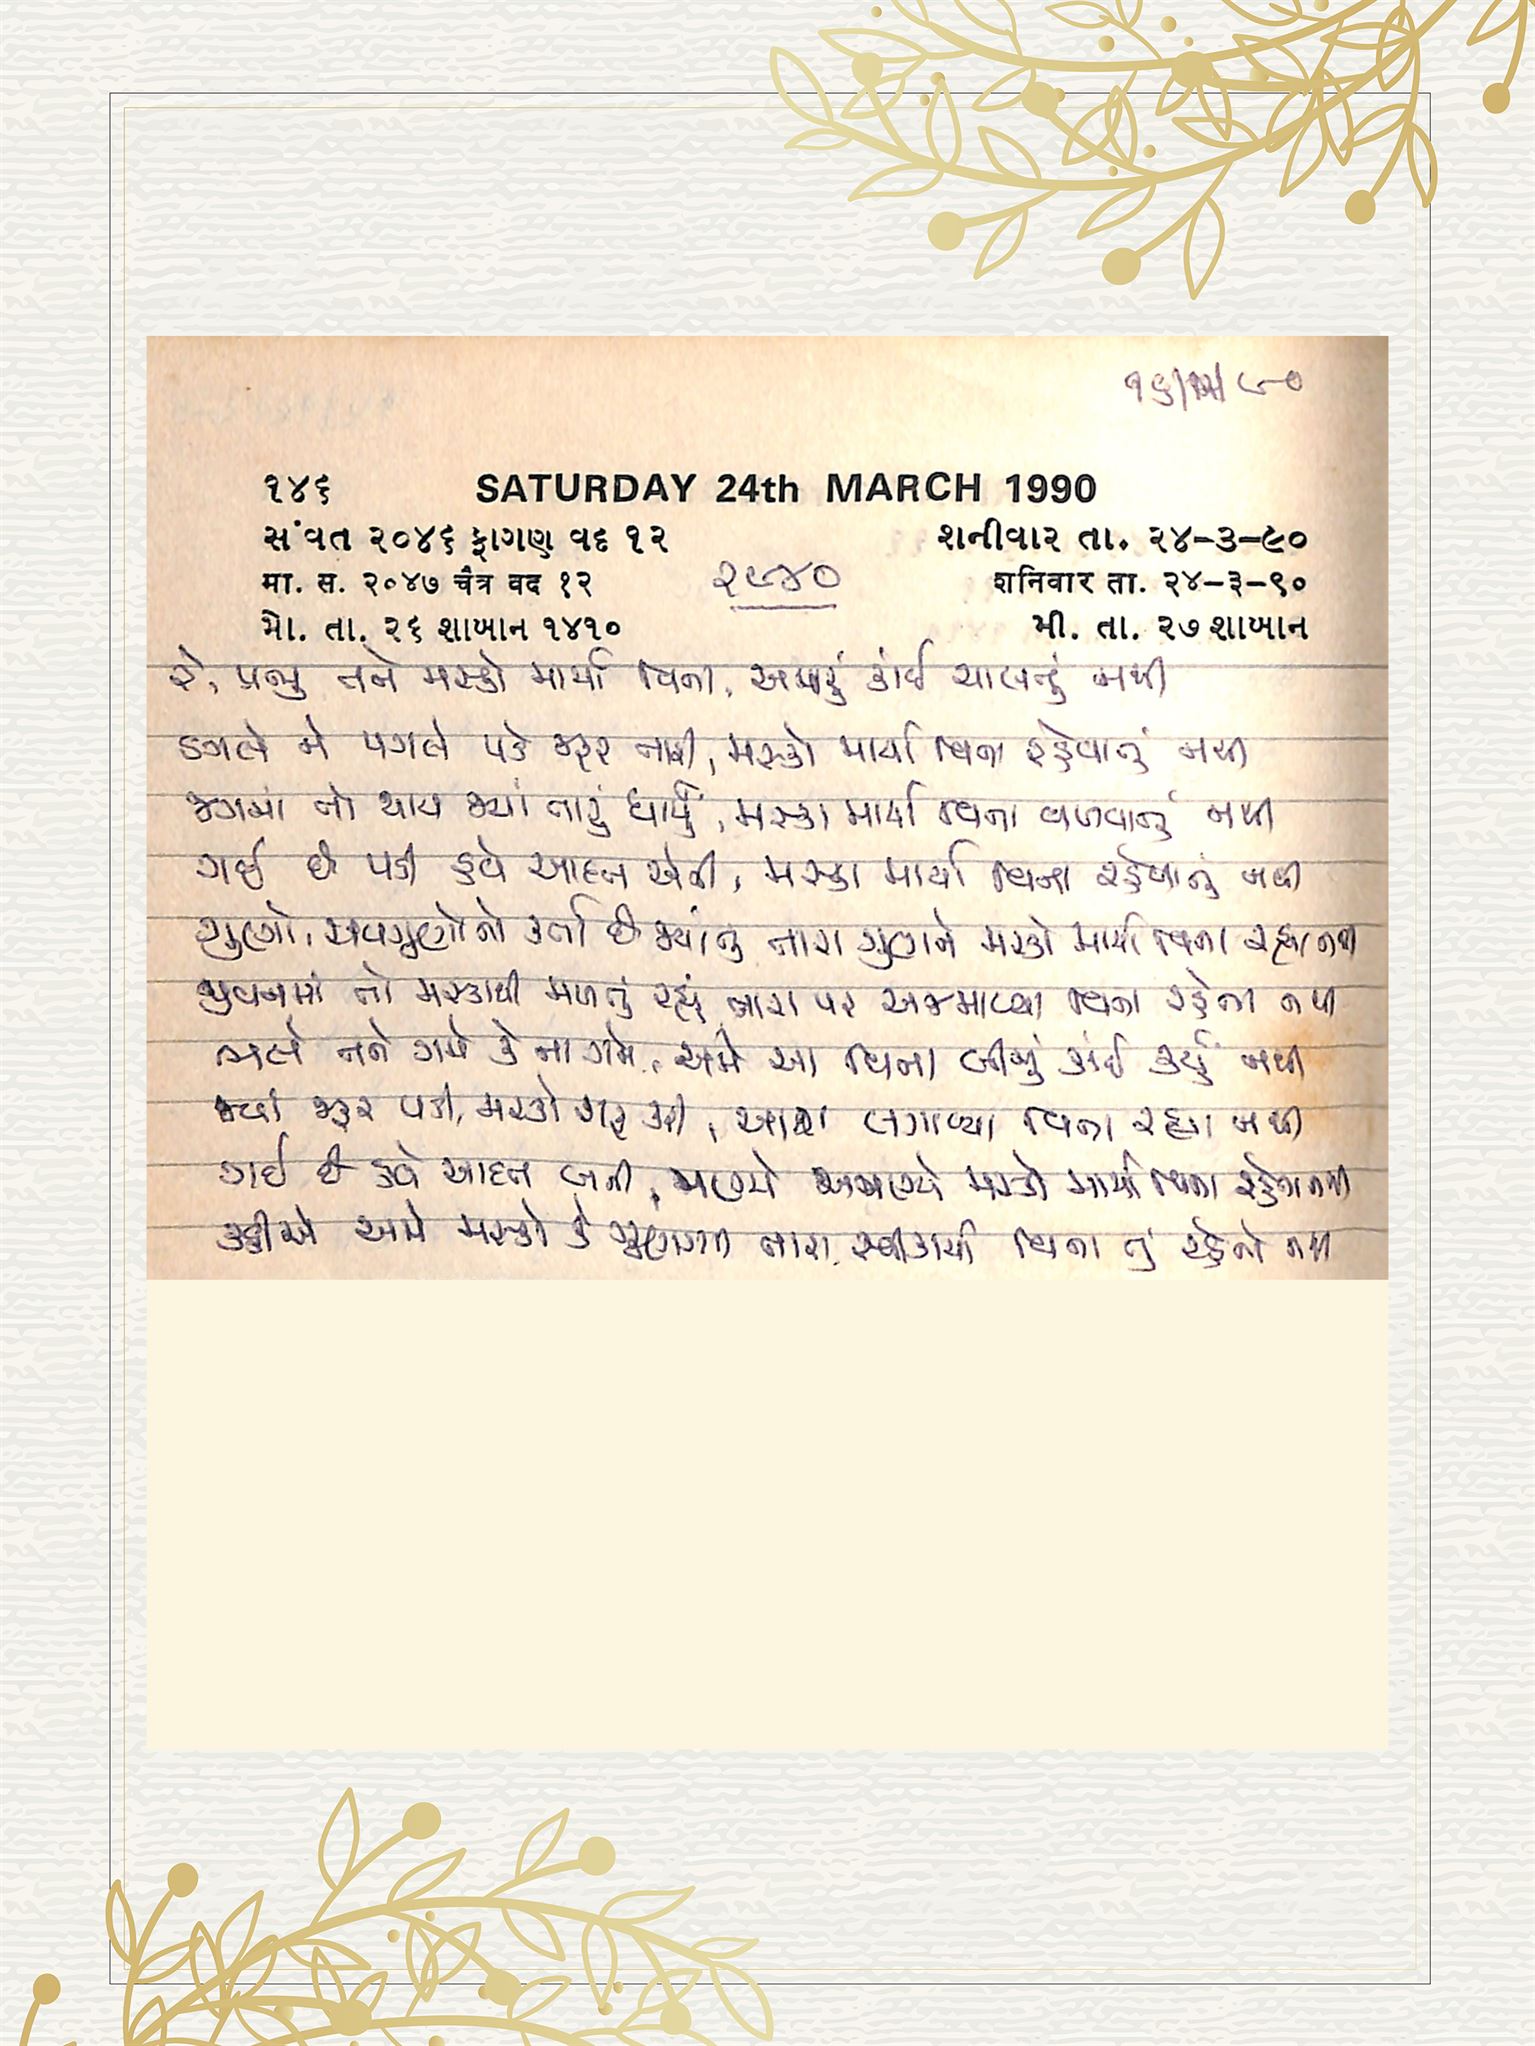 ૧૪૬ SATURDAY 24th MARCH 1990
સંવત ૨૦૪૬ ફાગણ વદ ૧૨ શનીવાર તા. ૨૪-૩-૯૦
મા. સ. ૨૦૪૭ ચૈત્ર વદ ૧૨ ૨૯૪૦ શનિવાર તા. ૨૪-૩-૯૦
મો. તા. ૨૬ શાબાન ૧૪૧૦ મી. તા. ૨૭ શાબાન
રે, પ્રભુ તને મસ્કો માર્યા વિના, અમારું કાંઈ ચાલતું નથી
ડગલે ને પગલે પડે જરૂર તારી, મસ્કો માર્યા વિના રહેવાનું નથી
જગમાં તો થાય જ્યાં તારું ધાર્યું, મસ્કા માર્યા વિના વળવાનું નથી
ગઈ છે પડી હવે આદત એવી, મસ્કા માર્યા વિના રહેવાનું નથી
ગુણો, અવગુણોનો કર્તા છે જ્યાં તું તારા ગુણને મસ્કો માર્યા વિના રહ્યા નથી
જીવનમાં તો મસ્કાથી મળતું રહ્યું, તારા પર અજમાવ્યા વિના રહેતા નથી
ભલે તને ગમે કે ના ગમે, અમે આ વિના બીજું કાંઈ કર્યું નથી
જ્યાં જરૂર પડી, મસ્કો શરૂ કરી, આશા લગાવ્યા વિના રહ્યા નથી
ગઈ છે હવે આદત બની, જાણ્યે અજાણ્યે મસ્કો માર્યા વિના રહેતા નથી
કહીએ અમે મસ્કો કે ગુણગાન તારા, સ્વીકાર્યા વિના તું રહેતો નથી